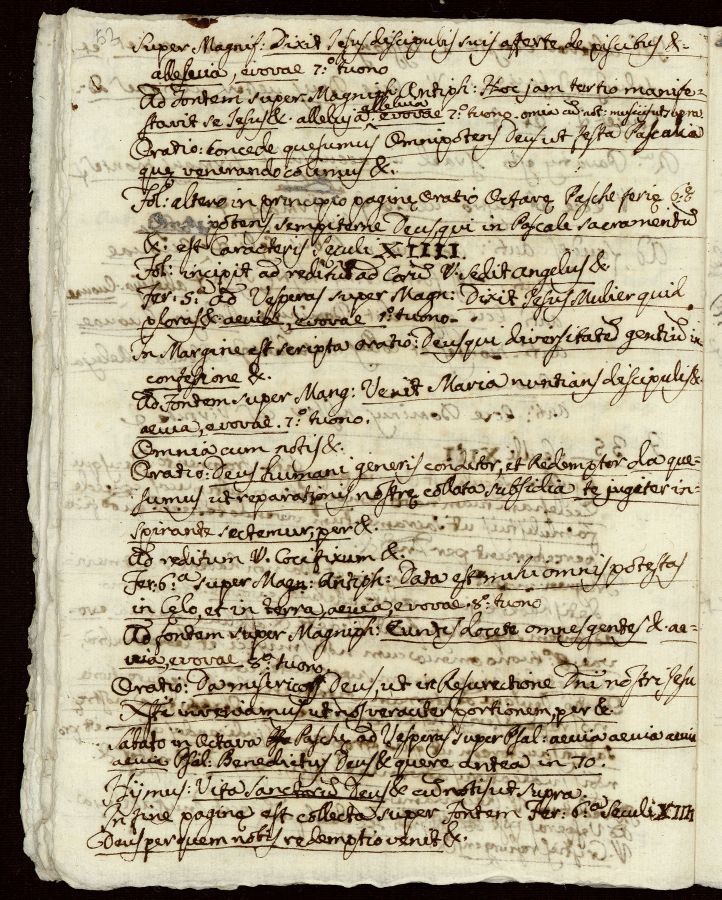 53
Super Magnif: Dixit Jesus discipulis suis afferte de piscibus &.
alleluia, evovae 7.º tuono
Ad Fontem super Magniph: Antiph: Hoc jam tertio manife-
alleluia
stavit se Jesus &. alleluja, evovae 7.º tuono. omia cũ not: ut supra
Oratio: Concede quesumus Omnipotens Deus ut festa Paschalia
que venerando colimus &.
Fol: altero in principio pagine Oratio Octave Pasche ferie 6.e
potens sempiterne Deus qui in Pascale sacramentũ
&. est Caracteris seculi XIIII.
Fol: incipit ad reditũ ad Corũ V. sedit Angelus &.
Fer: 5.a ad Vesperas super Magn: Dixit Jesus Mulier quid
ploras &. aevia, evovae 1.º tuono.
In Margine est scripta oratio: Deus qui diversitatẽ gentiũ in
confesione &.
Ad Fontem super Mang: Venit Maria nuntians descipulis &.
aevia, evovae. 7.º tuono.
Omnia cum notis &.
Oratio: Deus humani generis conditor, et Redemptor da que-
sumus ut reparationis nostre collata subsidia te jugiter in-
spirante sectemur, per &.
Ad reditum V. Cocifixum &.
Fer: 6.a super Magn: Antiph: Data est mihi omnis potestas
in Celo, et in terra, aevia, evovae. 8.º tuono
Ad Fontem super Magniph: Euntes docete omnes gentes &. ae-
via, evovae, 3.º tuono.
Oratio: Da misericors Deus, ut in Resurectione Dni nostri Jesu
Xsti inveniamus ut nos veraciter portionem, per &.
Sabato in Octava Pasche ad Vesperas super Psal: aevia aevia aevia
aevia Psal: Benedictus Deus &. quere antea in 70.
Hijmus: Vita Sanctorũ Deus &. cũ notis ut supra.
In fine pagine est collecta super Fontem Fer: 6.a seculi XIIII
Deus per quem nobis redemptio venit &.